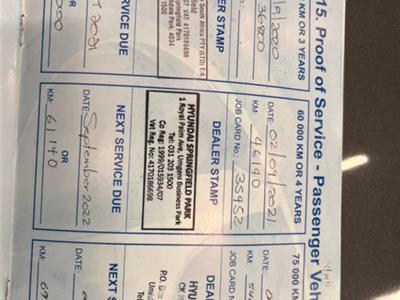 15. Proof of Service - Passenger Veh
KM OR 3 YEARS
/9/2020
36800
ER STAMP
South Africa PTY (LTD) t/a
field
VAT: 4170186698
Springfield Park
dale Park, 4034
1500
SERVICE DUE
2021
OR
000
60 000 KM OR 4 YEARS
DATE: 02/09/2021
KM: 46140
JOB CARD No.: 35452
DEALER STAMP
HYUNDAI SPRINGFIELD PARK
1 Royal Palm Ave, Umgeni Business Park
Tel: 031 203 1500
Co Reg: 1999/015934/07
Vat Reg. No: 4170186698
NEXT SERVICE DUE
DATE: September 2022
OR
KM: 61140
75 000 KM
DATE:
KM: 54
JOB CARD N
DEALER
HYU
CK
P.O. Bo
NEXT S
DATE:
KM: 69